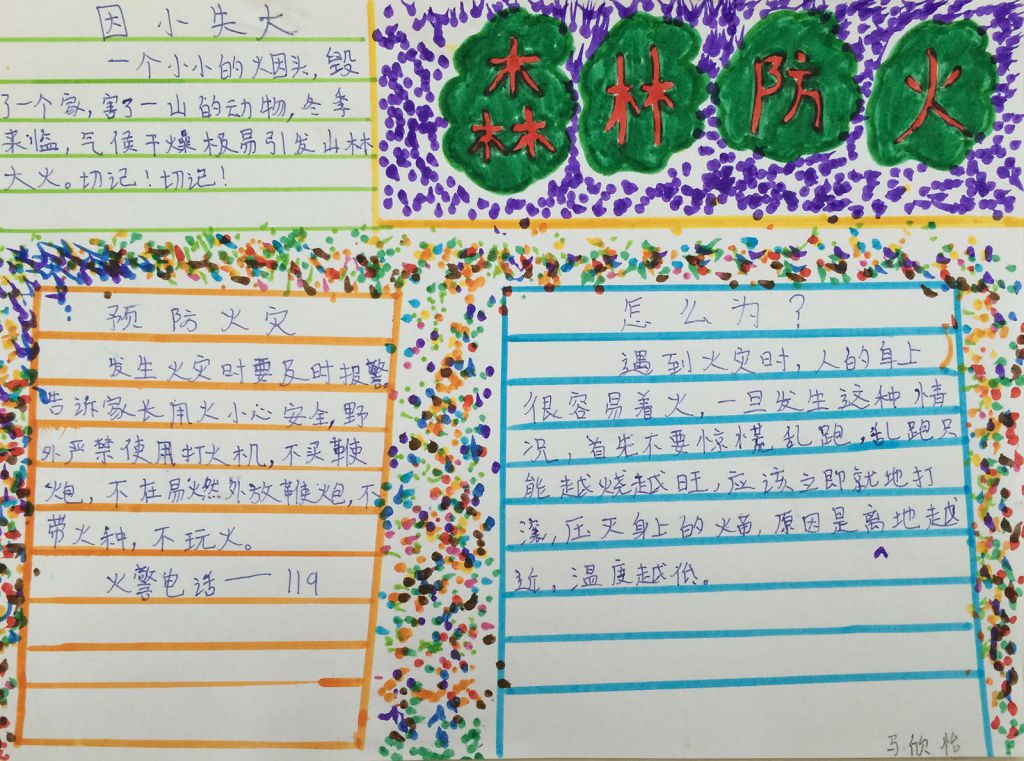 因小失大
一个小小的火因头，毁
了一个家，害了一山的动物，冬季
来监，气候干燥极易引发山林
大火。切记！切记！
森林防火
预防火灾
发生火灾时要及时报警
告诉家长用火小心安全，野
外严禁使用打火机，不买鞭
炮，不在易燃外放鞭炮，不
带火种，不玩火。
火警电话——119
怎么为？
遇到火灾时，人的身上
很容易着火，一旦发生这种情
况，首先不要惊慌乱跑，乱跑只
能越烧越旺，应该立即就地打
滚，压灭身上的火苗，原因是离地越
近，温度越低。
马欣怡